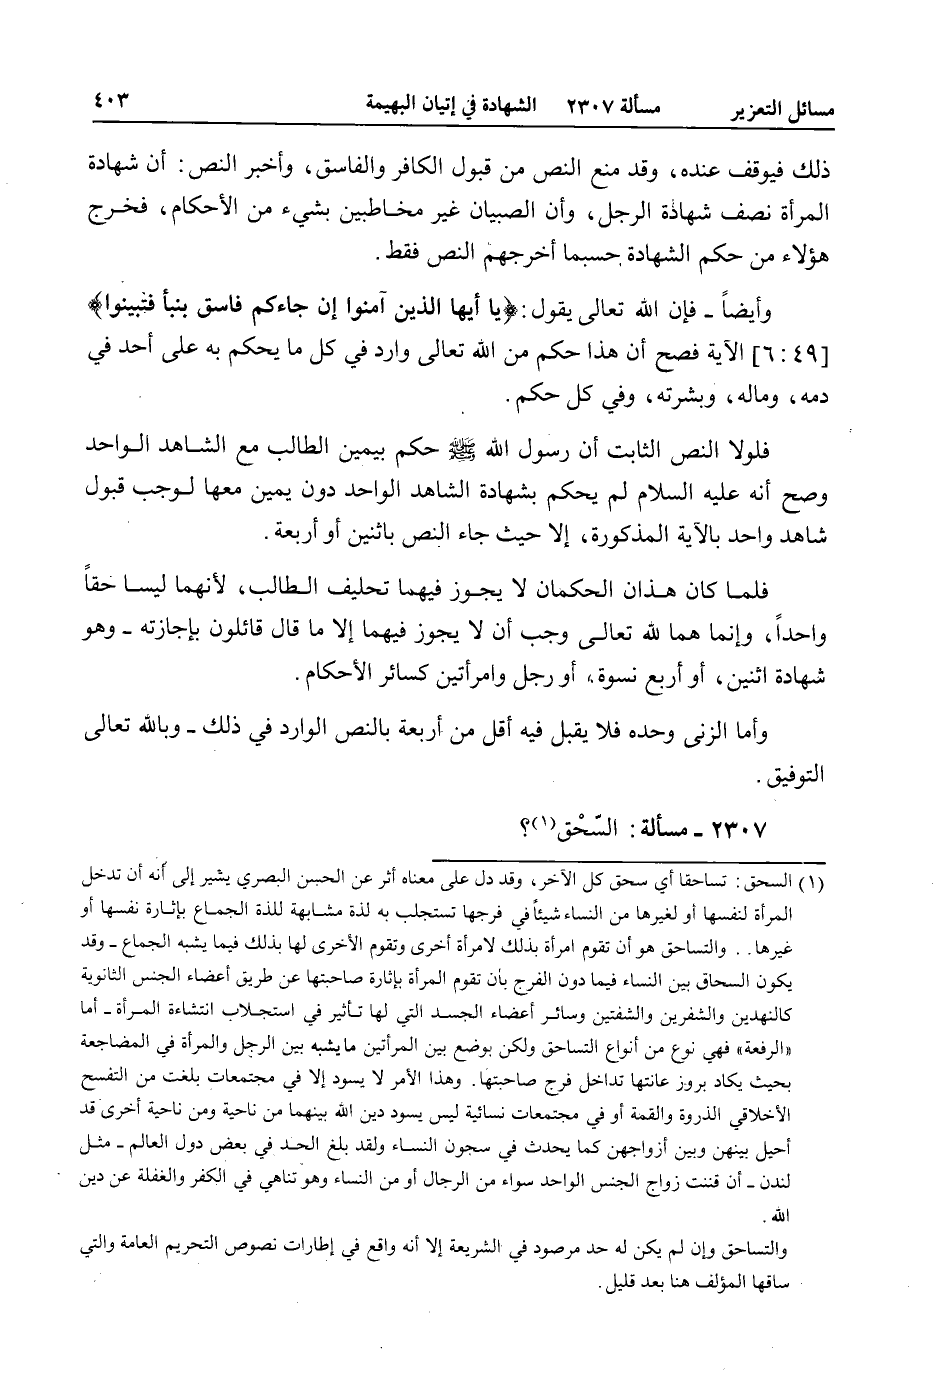 مسائل التعزير مسألة ٢٣٠٧ الشهادة في إتيان البهيمة ٤٠٣
ذلك فيوقف عنده، وقد منع النص من قبول الكافر والفاسق، وأخبر النص: أن شهادة
المرأة نصف شهادة الرجل، وأن الصبيان غير مخاطبين بشيء من الأحكام، فخرج
هؤلاء من حكم الشهادة حسبما أخرجهم النص فقط.
وأيضاً ـ فإن الله تعالى يقول: ﴿يا أيها الذين آمنوا إن جاءكم فاسق بنبأ فتبينوا﴾
[٤٩: ٦] الآية فصح أن هذا حكم من الله تعالى وارد في كل ما يحكم به على أحد في
دمه، وماله، وبشرته، وفي كل حكم.
فلولا النص الثابت أن رسول الله ﷺ حكم بيمين الطالب مع الشاهد الواحد
وصح أنه عليه السلام لم يحكم بشهادة الشاهد الواحد دون يمين معها لوجب قبول
شاهد واحد بالآية المذكورة، إلا حيث جاء النص باثنين أو أربعة.
فلما كان هذان الحكمان لا يجوز فيهما تحليف الطالب، لأنهما ليسا حقاً
واحداً، وإنما هما لله تعالى وجب أن لا يجوز فيهما إلا ما قال قائلون بإجازته ـ وهو
شهادة اثنين، أو أربع نسوة، أو رجل وامرأتين كسائر الأحكام.
وأما الزنى وحده فلا يقبل فيه أقل من أربعة بالنص الوارد في ذلك ـ وبالله تعالى
التوفيق.
٢٣٠٧ ـ مسألة: السّحْق(١)؟
(١) السحق: تساحقا أي سحق كل الآخر، وقد دل على معناه أثر عن الحسن البصري يشير إلى أنه أن تدخل
المرأة لنفسها أو لغيرها من النساء شيئاً في فرجها تستجلب به لذة مشابهة للذة الجماع بإثارة نفسها أو
غيرها.. والتساحق هو أن تقوم امرأة بذلك لامرأة أخرى وتقوم الأخرى لها بذلك فيما يشبه الجماع ـ وقد
يكون السحاق بين النساء فيما دون الفرج بأن تقوم المرأة بإثارة صاحبتها عن طريق أعضاء الجنس الثانوية
كالنهدين والشفرين والشفتين وسائر أعضاء الجسد التي لها تأثير في استجلاب انتشاءة المرأة ـ أما
«الرفعة» فهي نوع من أنواع التساحق ولكن بوضع بين المرأتين ما يشبه بين الرجل والمرأة في المضاجعة
بحيث يكاد بروز عانتها تداخل فرج صاحبتها. وهذا الأمر لا يسود إلا في مجتمعات بلغت من التفسح
الأخلاقي الذروة والقمة أو في مجتمعات نسائية ليس يسود دين الله بينهما من ناحية ومن ناحية أخرى قد
أحيل بينهن وبين أزواجهن كما يحدث في سجون النساء ولقد بلغ الحد في بعض دول العالم ـ مثل
لندن ـ أن قننت زواج الجنس الواحد سواء من الرجال أو من النساء وهو تناهي في الكفر والغفلة عن دين
الله.
والتساحق وإن لم يكن له حد مرصود في الشريعة إلا أنه واقع في إطارات نصوص التحريم العامة والتي
ساقها المؤلف هنا بعد قليل.